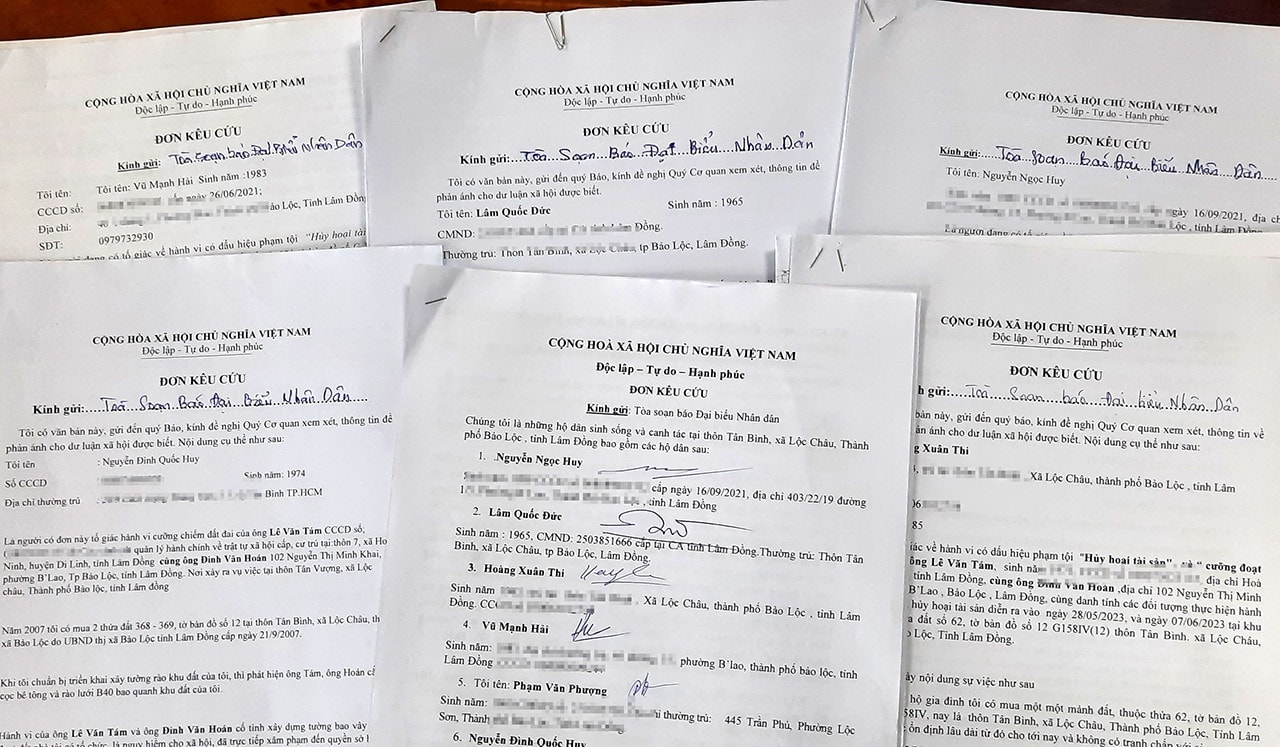 CỘNG HÒA XÃ HỘI CHỦ NGHĨA VIỆT NAM
Độc lập - Tự do - Hạnh phúc
ĐƠN KÊU CỨU
Kính gửi: Toà Soạn báo Đại biểu Nhân Dân
Tôi tên: Tôi tên: Vũ Mạnh Hải Sinh năm :1983
CCCD số: ngày 26/06/2021;
Địa chỉ: Bảo Lộc, Tỉnh Lâm Đồng
SĐT: 0979732930
có tố giác về hành vi có dấu hiệu phạm tội "Hủy hoại tài
CỘNG HÒA XÃ HỘI CHỦ NGHĨA VIỆT NAM
Độc lập - Tự do - Hạnh phúc
ĐƠN KÊU CỨU
Kính gửi:....Toà Soạn Báo Đại Biểu Nhân Dân
Tôi có văn bản này, gửi đến quý Báo, kính đề nghị Quý Cơ quan xem xét, thông tin để
phản ánh cho dư luận xã hội được biết.
Tôi tên: Lâm Quốc Đức Sinh năm : 1965
CMND: Đồng.
Thường trú: Thôn Tân Bình, xã Lộc Châu, tp Bảo Lộc, Lâm Đồng.
CỘNG HÒA XÃ HỘI CHỦ NGHĨA VIỆT NAM
Độc lập - Tự do - Hạnh phúc
ĐƠN KÊU CỨU
Kính gửi:...Toà soạn Báo Đại Biểu Nhân Dân
Tôi tên: Nguyễn Ngọc Huy
ngày 16/09/2021, địa chỉ
Lộc , tỉnh Lâm Đồng
CỘNG HÒA XÃ HỘI CHỦ NGHĨA VIỆT NAM
Độc lập - Tự do - Hạnh phúc
ĐƠN KÊU CỨU
Kính gửi:....Toà Soạn Báo Đại Biểu Nhân Dân....
Tôi có văn bản này, gửi đến quý Báo, kính đề nghị Quý Cơ quan xem xét, thông tin để
phản ánh cho dư luận xã hội được biết. Nội dung cụ thể như sau:
Tôi tên : Nguyễn Đình Quốc Huy
Số CCCD : Sinh năm: 1974
Địa chỉ thường trú : Bình TP.HCM
Là người có đơn này tố giác hành vi cưỡng chiếm đất đai của ông Lê Văn Tám CCCD số;
( quản lý hành chính về trật tự xã hội cấp, cư trú tại:thôn 7, xã Ho
Ninh, huyện Di Linh, tỉnh Lâm Đồng cùng ông Đinh Văn Hoán 102 Nguyễn Thị Minh Khai,
phường B'Lao, Tp Bảo Lộc, tỉnh Lâm Đồng. Nơi xảy ra vụ việc tại thôn Tân Vượng, xã Lộc
châu, Thành phố Bảo lộc, Tỉnh Lâm đồng
Năm 2007 tôi có mua 2 thửa đất 368 - 369, tờ bản đồ số 12 tại thôn Tân Bình, xã Lộc Châu, th
xã Bảo Lộc do UBND thị xã Bảo Lộc tỉnh Lâm Đồng cấp ngày 21/9/2007.
Khi tôi chuẩn bị triển khai xây tường rào khu đất của tôi, thì phát hiện ông Tám, ông Hoán cắ
cọc bê tông và rào lưới B40 bao quanh khu đất của tôi.
Hành vi của ông Lê Văn Tám và ông Đinh Văn Hoán cố tình xây dựng tường bao vây
là nguy hiểm cho xã hội, đã trực tiếp xâm phạm đến quyền sở
CỘNG HOÀ XÃ HỘI CHỦ NGHĨA VIỆT NAM
Độc lập – Tự do – Hạnh phúc
ĐƠN KÊU CỨU
Kính gửi: Tòa soạn báo Đại biểu Nhân dân
Chúng tôi là những hộ dân sinh sống và canh tác tại thôn Tân Bình, xã Lộc Châu, Thành
phố Bảo Lộc , tỉnh Lâm Đồng bao gồm các hộ dân sau:
1. .Nguyễn Ngọc Huy
cấp ngày 16/09/2021, địa chỉ 403/22/19 đường
Lộc , tỉnh Lâm Đồng
2. Lâm Quốc Đức
Sinh năm : 1965, CMND: 2503851666 cấp tại CA tỉnh Lâm Đồng.Thường trú: Thôn Tân
Bình, xã Lộc Châu, tp Bảo Lộc, Lâm Đồng.
3. Hoàng Xuân Thi
Sinh năm: , Xã Lộc Châu, thành phố Bảo Lộc , tỉnh Lâm
Đồng. CCC
4. Vũ Mạnh Hải
Sinh năm: phường B'lao, thành phố bảo lộc, tỉnh
Lâm Đồng
5. Tôi tên: Phạm Văn Phượng
Sinh năm: thường trú: 445 Trần Phú, Phường Lộc
Sơn, Thành
6. Nguyễn Đình Quốc Huy
CỘNG HÒA XÃ HỘI CHỦ NGHĨA VIỆT NAM
Độc lập - Tự do - Hạnh phúc
ĐƠN KÊU CỨU
h gửi:.....Toà Soạn báo Đại biểu Nhân Dân
bản này, gửi đến quý báo, kính đề nghị Quý Cơ quan xem xét, thông tin về
ánh cho dư luận xã hội được biết. Nội dung cụ thể như sau:
g Xuân Thi
, Xã Lộc Châu, thành phố Bảo Lộc , tỉnh Lâm
85
giác về hành vi có dấu hiệu phạm tội "Hủy hoại tài sản", và " cưỡng đoạt
ông Lê Văn Tám, sinh năm địa chỉ Hoà
, tỉnh Lâm Đồng, cùng ông Đinh Văn Hoán ,địa chỉ 102 Nguyễn Thị Minh
B'Lao , Bảo Lộc , Lâm Đồng, cùng danh tính các đối tượng thực hiện hành
hủy hoại tài sản diễn ra vào ngày 28/05/2023, và ngày 07/06/2023 tại khu
a đất số 62, tờ bản đồ số 12 G158IV(12) thôn Tân Bình. xã Lộc Châu,
o Lộc, Tỉnh Lâm Đồng.
ày nội dung sự việc như sau
hộ gia đình tôi có mua một một mảnh đất, thuộc thửa 62, tờ bản đồ 12,
58IV, nay là thôn Tân Bình, xã Lộc Châu, Thành phố Bảo Lộc, Tỉnh Lâm
ổn định lâu dài từ đó cho tới nay và không có tranh chấp với